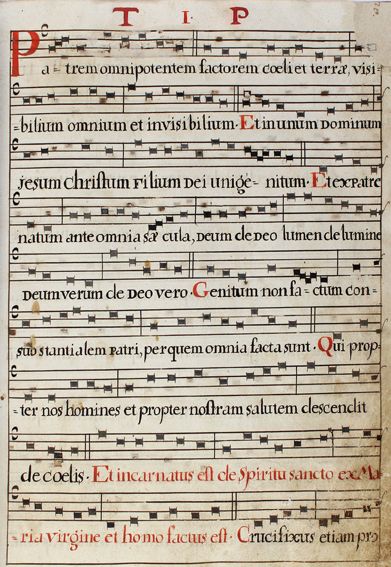 T I P
Pa- trem omnipotentem factorem cœli et terræ, visi-
-bilium omnium et invisibilium. Et in unum Dominum
jesum Christum Filium Dei unige- nitum. Et ex Patre
natum ante omnia sæcula, Deum de Deo lumen de lumine
Deum verum de Deo vero. Genitum non factum con-
substantialem patri, per quem omnia facta sunt. Qui prop-
ter nos homines et propter nostram salutem descendit
de coelis. Et incarnatus est de Spiritu sancto ex Ma
ria virgine et homo factus est. Crucifixus etiam pro